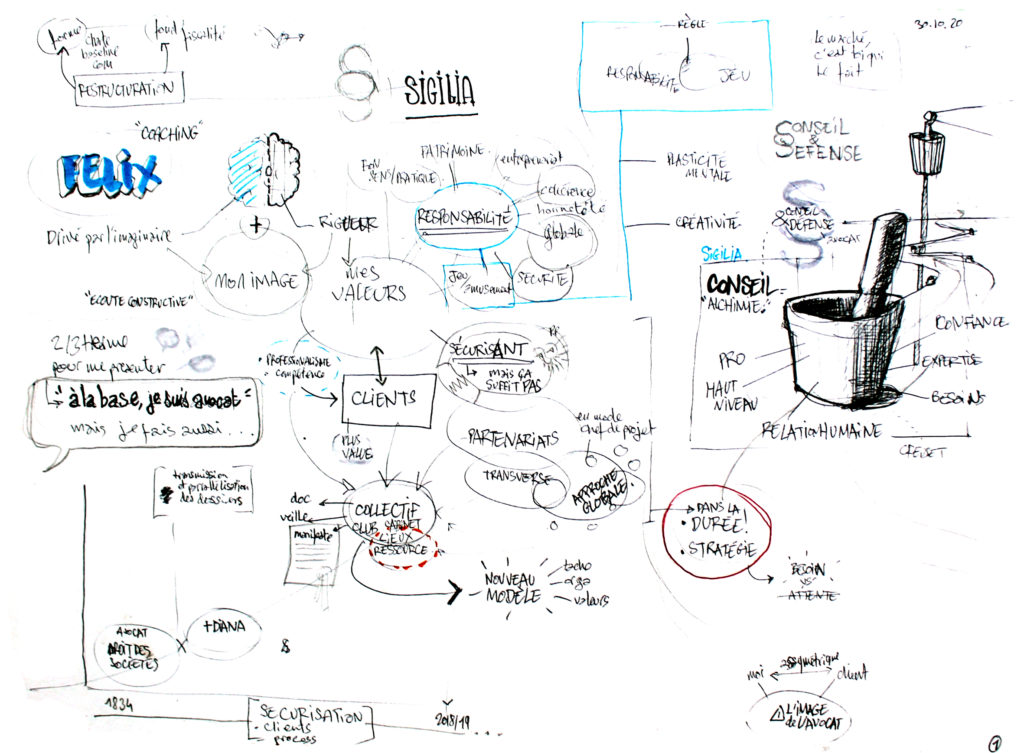 forme
charte
baseline
com
fond
fiscalité
RESTRUCTURATION
SIGILIA
RÈGLE
RESPONSABILITÉ
JEU
30.10.20
le marché,
c'est toi qui
le fait
"COACHING"
FELIX
Drivé par l'imaginaire
+
RIGUEUR
MON IMAGE
"ECOUTE CONSTRUCTIVE"
BON
SENS/PRATIQUE
PATRIMOINE
entreprenariat
RESPONSABILITÉ
cohérence
honnêteté
globale
SÉCURITÉ
JEU
amusement
MES
VALEURS
PLASTICITÉ
MENTALE
CRÉATIVITÉ
CONSEIL
&
DEFENSE
CONSEIL
& DÉFENSE
AVOCAT
SIGILIA
CONSEIL
"ALCHIMIE"
PRO
HAUT
NIVEAU
CONFIANCE
EXPERTISE
BESOINS
RELATION HUMAINE
CREUSET
2/3 thème
pour me présenter
"à la base, je suis avocat"
mais je fais aussi ...
• PROFESSIONALISME
• compétence
CLIENTS
SÉCURISANT
MAIS ÇA
SUFFIT PAS
PLUS
VALUE
PARTENARIATS
TRANSVERSE
en mode
chef de projet
APPROCHE
GLOBALE
transmission
et parallélisation
des dossiers
doc
veille
manifeste
COLLECTIF
CLUB
CABINET
LIEUX
RESSOURCE
NOUVEAU
MODÈLE
techo
orga
valeurs
• DANS LA
DURÉE!
• STRATÉGIE
BESOIN
VS
ATTENTE
AVOCAT
DROIT DES
SOCIÉTÉS
X
+DIANA
&
1834
SÉCURISATION
• clients
process
2018/19
...
moi
assymétrique
client
L'IMAGE
de L'AVOCAT
1